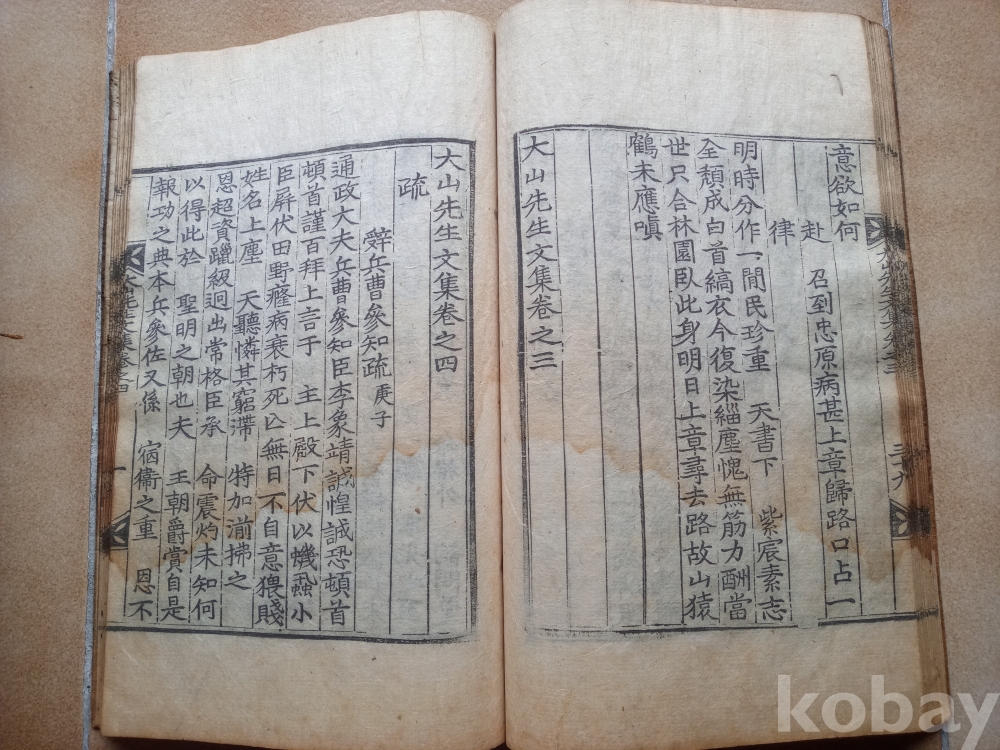 意欲如何
赴 召到忠原病甚上章歸路口占一
律
明時分作一閒民珍重 天書下 紫宸素志
全頹成白首縞衣今復染緇塵愧無筋力酬當
世只合林園臥此身明日上章尋去路故山猿
鶴未應嗔
大山先生文集卷之三
大山先生文集卷之四
疏
辭兵曹參知疏 庚子
通政大夫兵曹參知臣李象靖誠惶誠恐頓首
頓首謹百拜上言于 主上殿下伏以蟣蝨小
臣屛伏田野癃病衰朽死亡無日不自意猥賤
姓名上塵 天聽憐其窮滯 特加湔拂之
恩超資躐級迥出常格臣承 命震灼未知何
以得此於 聖明之朝也夫 王朝爵賞自是
報功之典本兵參佐又係 宿衞之重 恩不
一
kobay